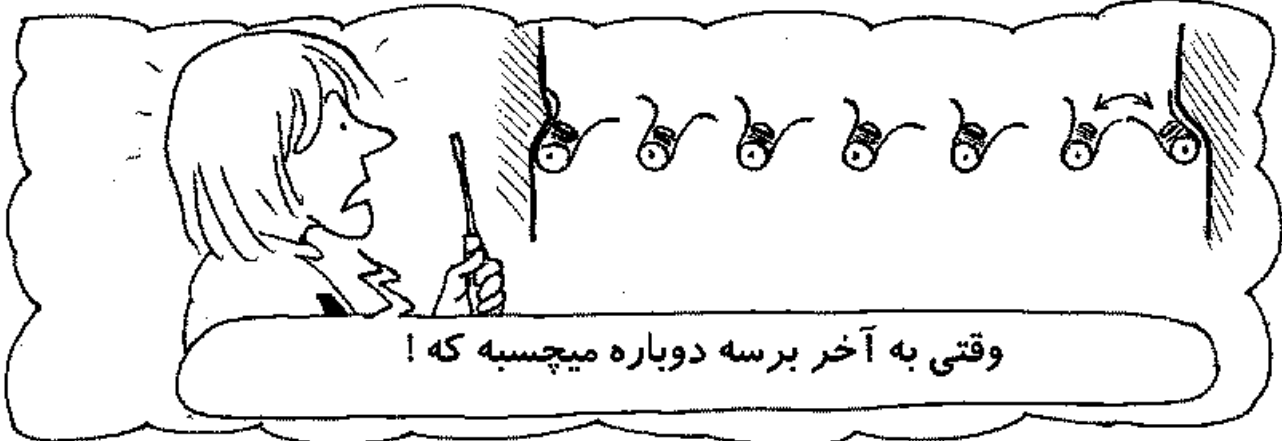 وقتی به آخر برسه دوباره میچسبه که !